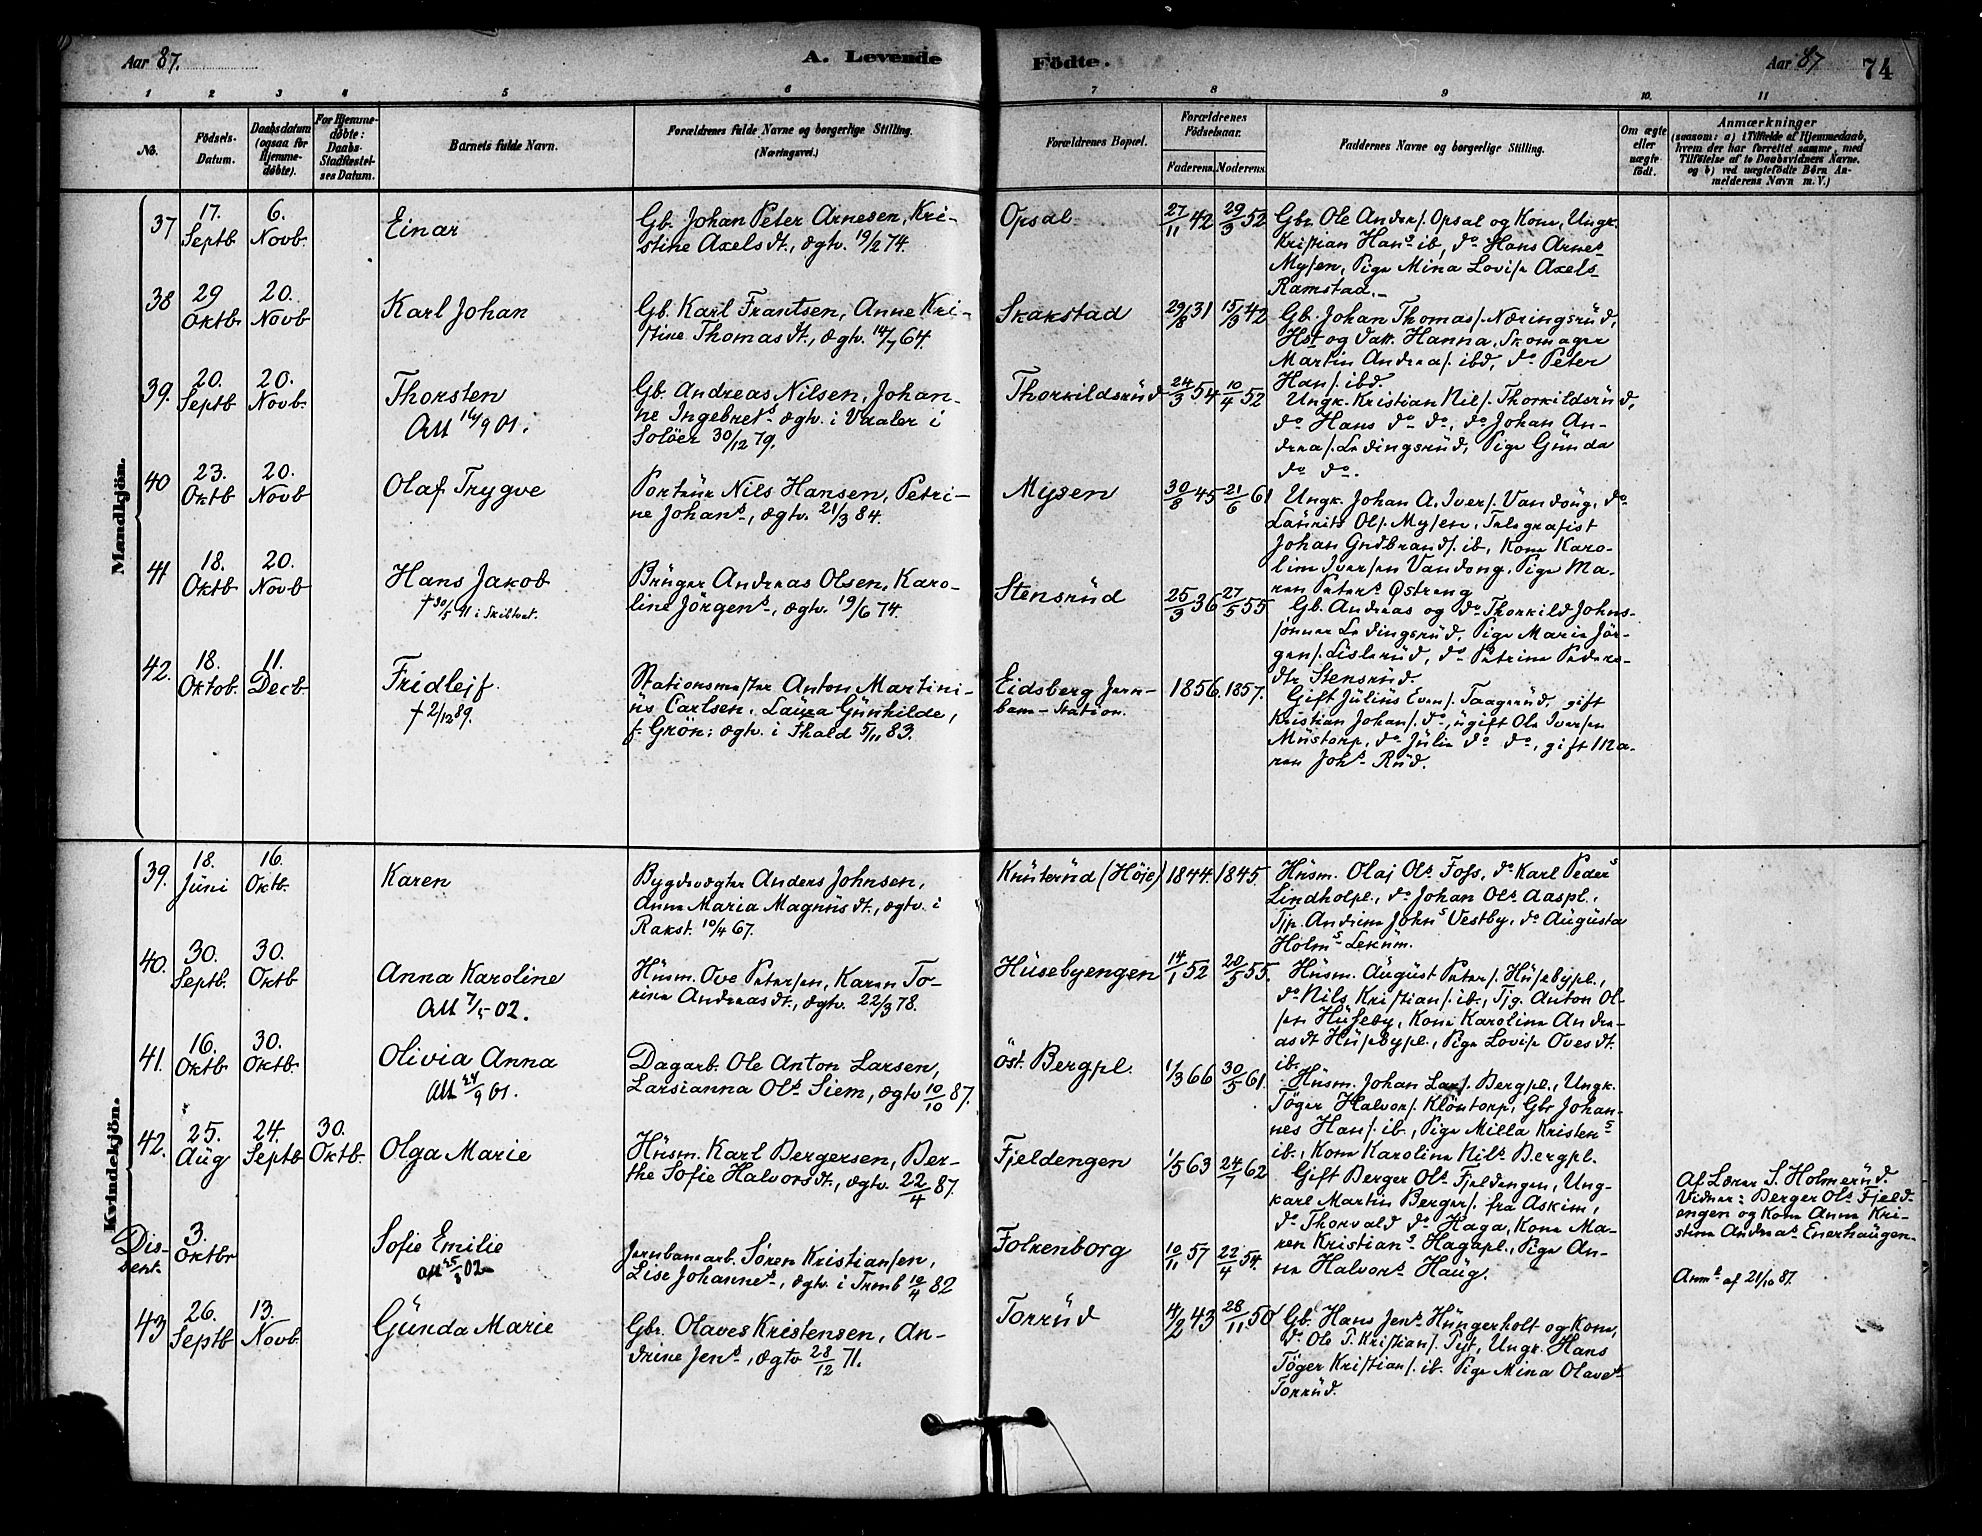 Aar 87.
A. Levende
Födte.
Aar 87
74
1 2 3 4 5 6 7 8 9 10. 11
No.
Födsels-Datum.
Daabsdatum (ogsaa for Hjemme-döbte).
For Hjemme-döbte: Daabs-Stadfæstel-ses Datum.
Barnets fulde Navn.
Forældrenes fulde Navne og borgerlige Stilling.
(Næringsvei.)
Forældrenes Bopæl.
Forældrenes Födselsaar.
Faderens. Moderens.
Faddernes Navne og borgerlige Stilling.
Om ægte eller uægte födt.
Anmærkninger
(saasom: a) i Tilfælde af Hjemmedaab,
hvem der har forrettet samme, med
Tilföielse af to Daabsvidners Navne,
og b) ved uægtefödte Børn An-
melderens Navn m. V.)
Mandkjön.
37 17. Septb. 6. Novb. Einar
Gb. Johan Peter Arnesen, Kri-
stine Axelsdt., ægtv. 19/2 74.
Opsal 27/11 42 29/3 52
Gbr. Ole Anders. Opsal og Kone, Ungk.
Kristian Hans ib, do Hans Arnes
Mysen, Pige Mina Lovise Axels
Ramstad.
38 29 Oktb 20. Novb Karl Johan
Gb. Karl Frantsen, Anne Kri-
stine Thomasdt., ægtv. 14/7 64.
Skakstad 29/8 31 15/9 42
Gb. Johan Thomas. Næringsrud,
Hst og Datt. Hanna, Skomager
Martin Andreas. ibd, do Peter
Hans. ibd.
39. 20. Septb 20. Novb. Thorsten
Att 14/9 01.
Gb. Andreas Nilsen, Johan-
ne Ingebrets. ægtv. i Vaaler i
Solöer 30/12 79.
Thorkildsrud 24/3 54 10/4 52
Ungk. Kristian Nils. Thorkildsrud,
do Hans do do, do Johan An-
dreas. Ledingsrud, Pige Gunda
do do.
40 23. Oktb 20. Novb Olaf Trygve
Porteur Nils Hansen, Petri-
ne Johans, ægtv. 21/3 84.
Mysen 30/8 45 21/6 61
Ungk. Johan A. Ivers. Vandong, do
Laurits Ols. Mysen, Telegrafist
Johan Gudbrands. ib, Kone Karo-
line Iversen Vandong, Pige Ma-
ren Peters Østreng
41 18. Oktb 20. Novb Hans Jakob
† 30/5 91 i Skibtvet.
Bruger Andreas Olsen, Karo-
line Jörgens, ægtv. 19/6 74.
Stensrud 25/3 36 27/5 55
Gb. Andreas og do Thorkild Johns-
sönner Ledingsrud, Pige Marie Jör-
gens. Lislerud, do Petrine Peders-
dtr Stensrud.
42. 18. Oktob. 11. Decb Fridlejf.
† 2/12 89.
Stationsmester Anton Martini-
us Carlsen, Laura Gunhilde,
f. Grön: ægtv. i Fhald 5/11 83.
Eidsberg Jern-
bane-Station. 1856. 1857.
Gift Julius Evens. Taagerud, gift
Kristian Johans. do, ugift Ole Iversen
Mustorp, do Julie do do, gift Ma-
ren Johs Rud.
Kvindekjön.
39. 18. Juni 16. Oktb. Karen
Bygdevægter Anders Johnsen,
Anne Maria Magnusdt., ægtv. i
Rakst. 10/4 67.
Knuterud (Höje) 1844. 1845.
Husm. Olaj Ols Foss, do Karl Peders
Lindholpl., do Johan Ols Aaspl.,
Tjp. Andrine Johns Vestby, do Augusta
Holms Lekum.
40. 30. Septb. 30. Oktb Anna Karoline
Att 7/5 02.
Husm. Ove Petersen, Karen To-
rine Andreasdt., ægtv. 22/3 78.
Husebyengen 14/1 52 20/5 55.
Husm. August Peters. Husebypl.,
do Nils Kristians. ib., Tjg. Anton Ol-
sen Huseby, Kone Karoline Andre-
asdt Husebypl., Pige Lovise Ovesdt.
ib.
41. 16. Oktb 30. Oktb. Olivia Anna
Att 24/9 01.
Dagarb. Ole Anton Larsen,
Larsianna Ols Siem, ægtv 10/10 87.
Öst. Bergpl. 1/3 66 30/5 61.
Husm. Johan Lars. Bergpl., Ungk.
Töger Halvors. Klöntorp, Gbr Johan-
nes Hans. ib, Pige Milla Kristens
ib., Kone Karoline Nils Bergpl.
42. 25. Aug 24. Septb 30. Oktb. Olga Marie
Husm. Karl Bergersen, Ber-
the Sofie Halvorsdt., ægtv. 22/4 87.
Fjeldengen 1/5 63 24/7 62
Gift Berger Ols Fjeldengen, Ung-
karl Martin Bergers. fra Askim,
do Thorvald do Haga, Kone Ma-
ren Kristians Hagapl., Pige An-
ne Halvors Haug.
Af Lærer S. Holmerud.
Vidner: Berger Ols Fjeld-
engen og Kone Anne Kri-
stine Andreas Enerhaugen.
Dis-
sent. 3. Oktbr Sofie Emilie
Att 25/3 02
Jernbanearb. Sören Kristiansen,
Lise Johannes, ægtv. i Trmb 10/4 82
Folkenborg 10/11 57 22/4 54.
Anm. af 21/10 87.
43 26. Septb 13. Novb. Gunda Marie
Gbr. Olaves Kristensen, An-
drine Jens, ægtv 28/12 71.
Torrud 4/2 43 28/11 50
Gb. Hans Jens Hungerholt og Kone,
do Ole P. Kristians. Tyt, Ungk. Hans
Töger Kristians. ib. Pige Mina Olaves
Torrud.